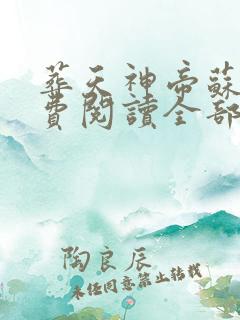 葬天神帝蘇
費閱讀全部
陶良辰
未经同意禁止转载